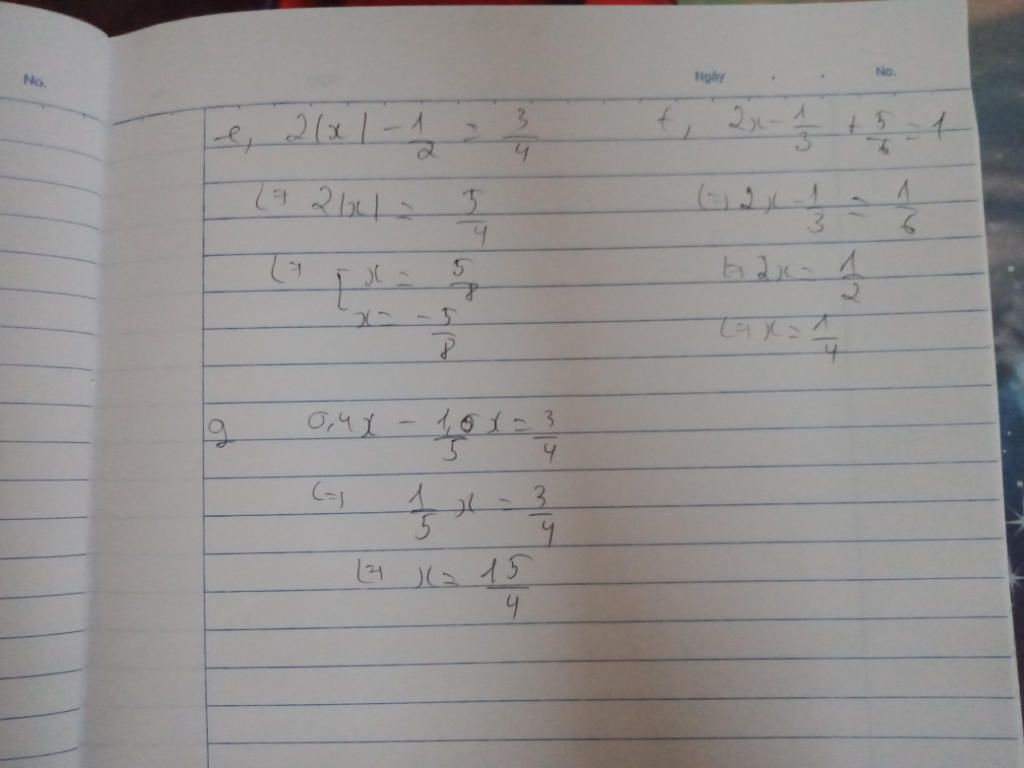 No.
Ngày . . No.
e, 2|x| - 1/2 = 3/4
(=> 2|x| = 5/4
(=> [ x = 5/8
x = -5/8
f, 2x - 1/3 + 5/6 = 1
(=, 2x - 1/3 = 1/6
(=> 2x = 1/2
(=> x = 1/4
g 0,4x - 1/5 . x = 3/4
(=, 1/5 x = 3/4
(=> x = 15/4